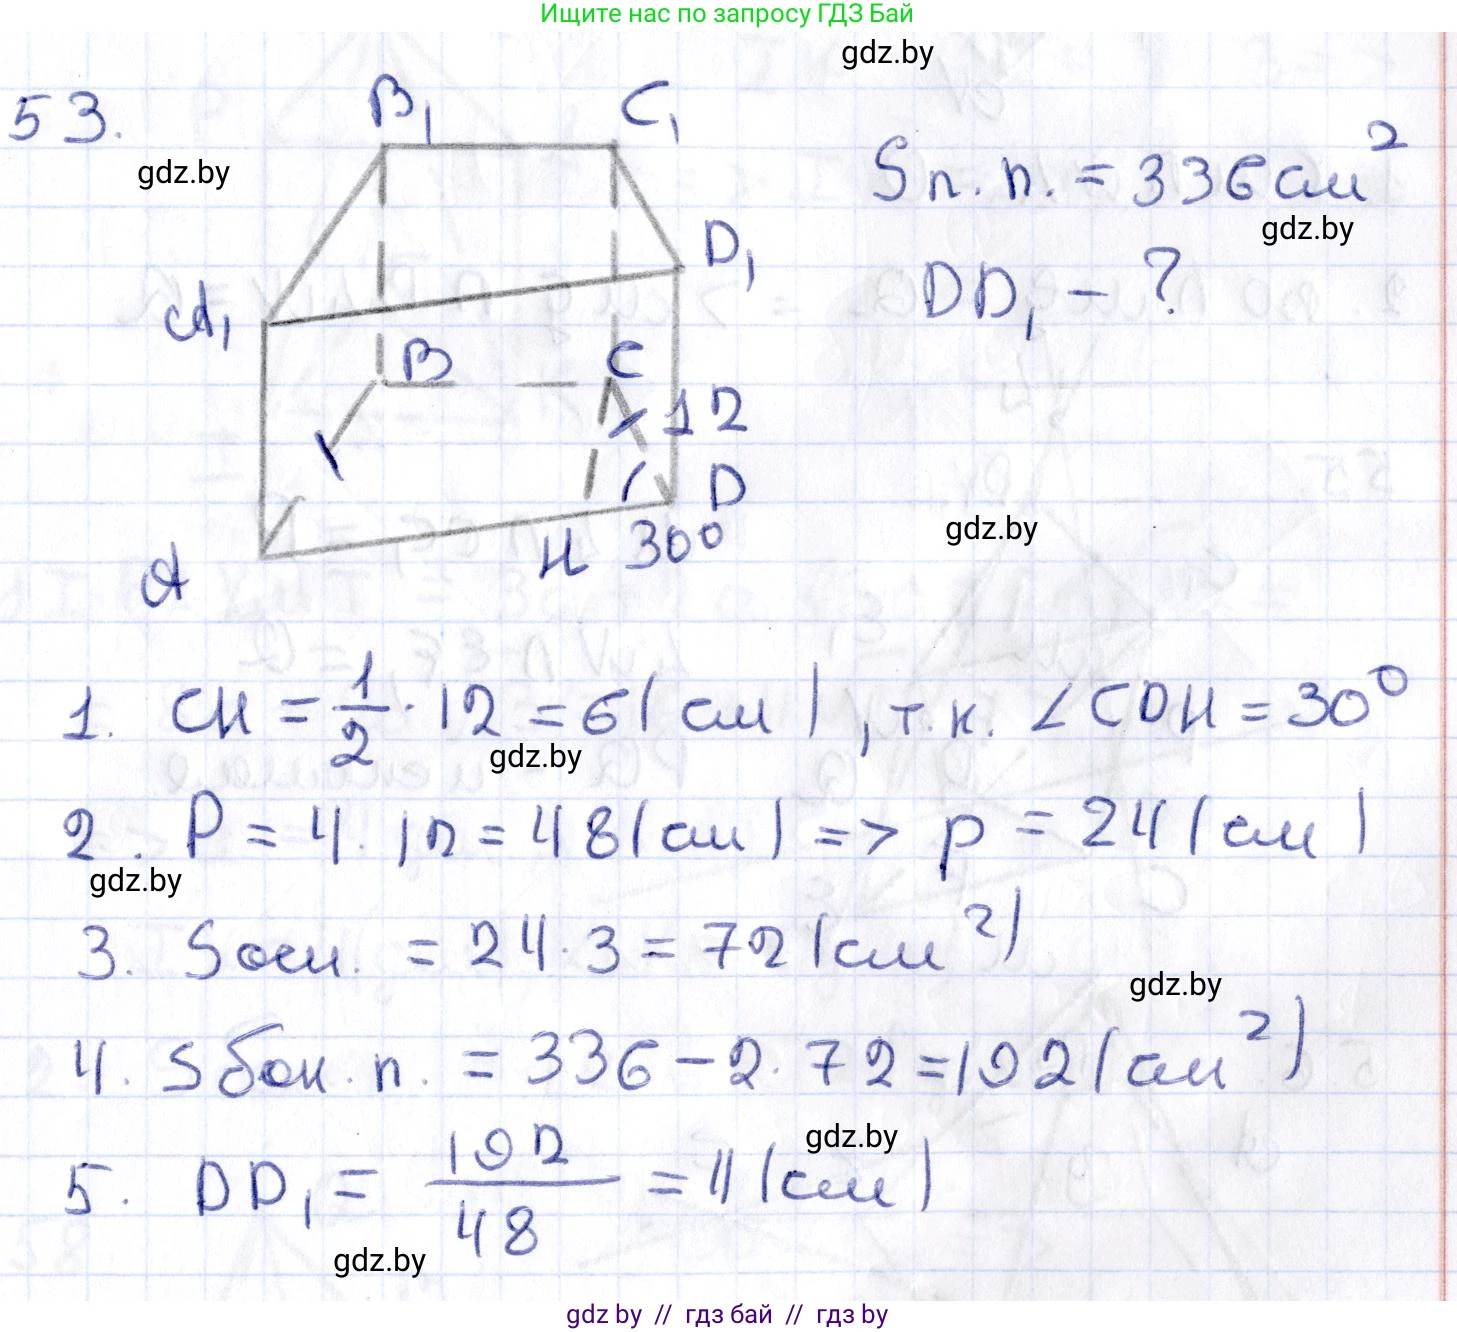 Ищите нас по запросу ГДЗ Бай
gdz.by
53.
B₁ C₁
gdz.by
Sп.п. = 336 см²
gdz.by
D₁
DD₁ - ?
A₁
B C
12
D
gdz.by
H 30°
A
1. CH = 1/2 · 12 = 6 (см), т.к. ∠CDH = 30°
gdz.by
2. P = 4 · 12 = 48 (см) => p = 24 (см)
gdz.by
3. Sосн. = 24 · 3 = 72 (см²)
gdz.by
4. Sбок.п. = 336 - 2 · 72 = 192 (см²)
gdz.by
5. DD₁ = 192/48 = 4 (см)
gdz.by
gdz.by // гдз бай // гдз by